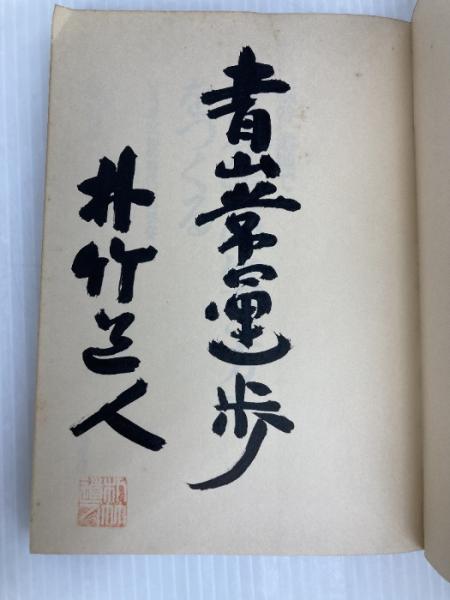 青山常運歩
林竹道人